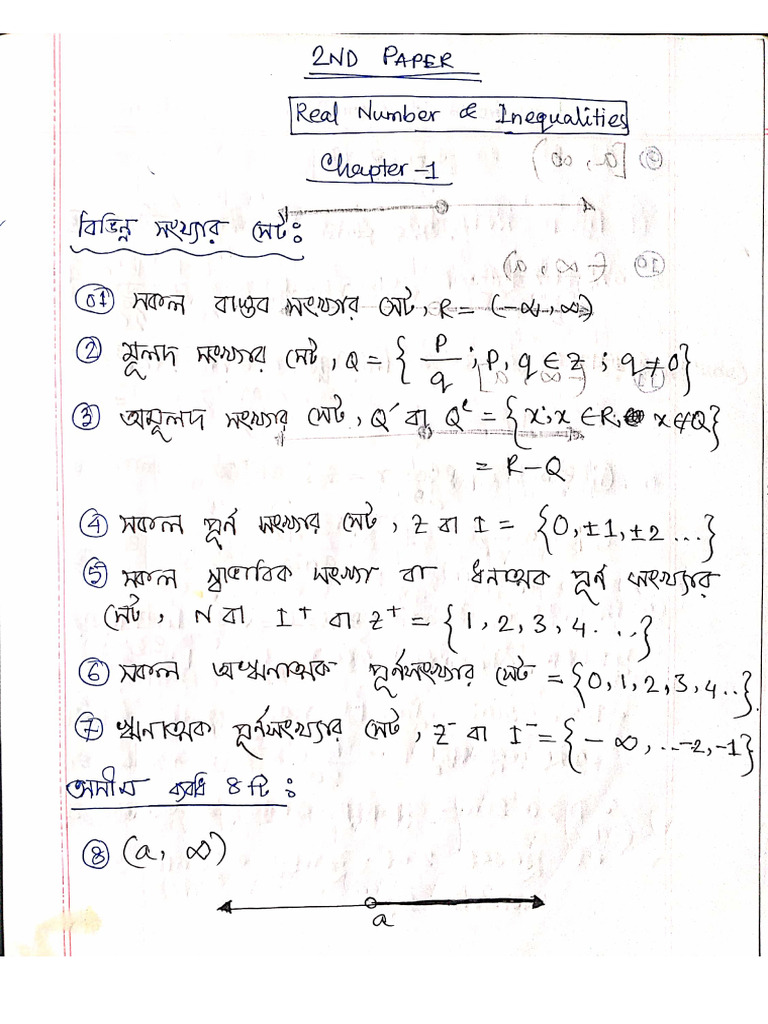 2ND PAPER
Real Number & Inequalities
Chapter-1
বিভিন্ন সংখ্যার সেট:
01 সকল বাস্তব সংখ্যার সেট, R = (-∞, ∞)
2 মূলদ সংখ্যার সেট, Q = { P/q ; P, q ∈ z ; q ≠ 0}
3 অমূলদ সংখ্যার সেট, Q′ বা Qᶜ = {x; x ∈ R, x ∉ Q}
= R - Q
4 সকল পূর্ন সংখ্যার সেট, Z বা I = {0, ±1, ±2 ...}
5 সকল স্বাভাবিক সংখ্যা বা ধনাত্মক পূর্ন সংখ্যার
সেট, N বা I⁺ বা Z⁺ = {1, 2, 3, 4. ...}
6 সকল অঋনাত্মক পূর্নসংখ্যার সেট = {0, 1, 2, 3, 4 ..}
7 ঋনাত্মক পূর্নসংখ্যার সেট, Z⁻ বা I⁻ = {- ∞, ..-2, -1}
অসীম ব্যবধি ৪ টি:
8 (a, ∞)
a